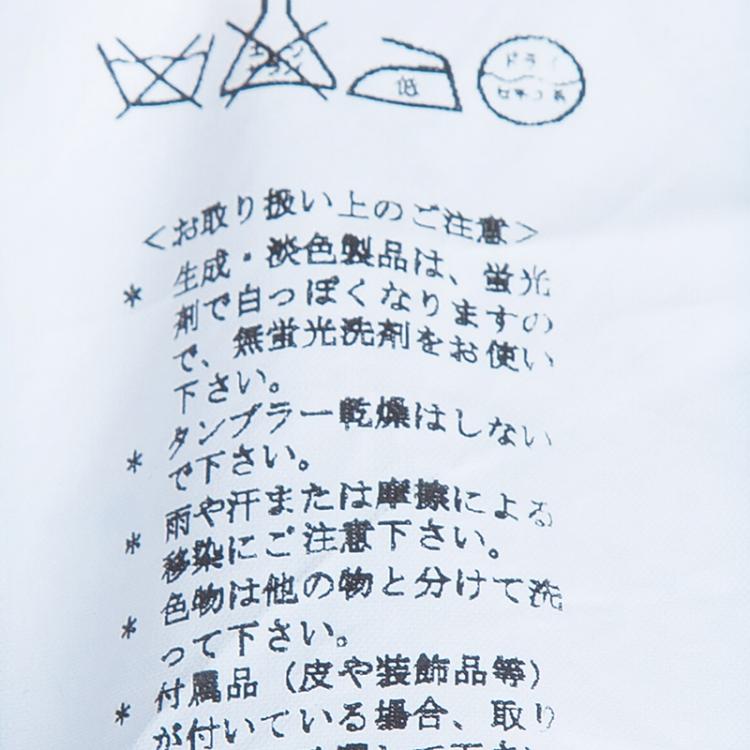 エンソ
サラシ
低
ドライ
セキユ系
<お取り扱い上のご注意>
* 生成・淡色製品は、蛍光
剤で白っぽくなりますの
で、無蛍光洗剤をお使い
下さい。
* タンブラー乾燥はしない
で下さい。
* 雨や汗または摩擦による
移染にご注意下さい。
* 色物は他の物と分けて洗
って下さい。
* 付属品(皮や装飾品等)
が付いている場合、取り